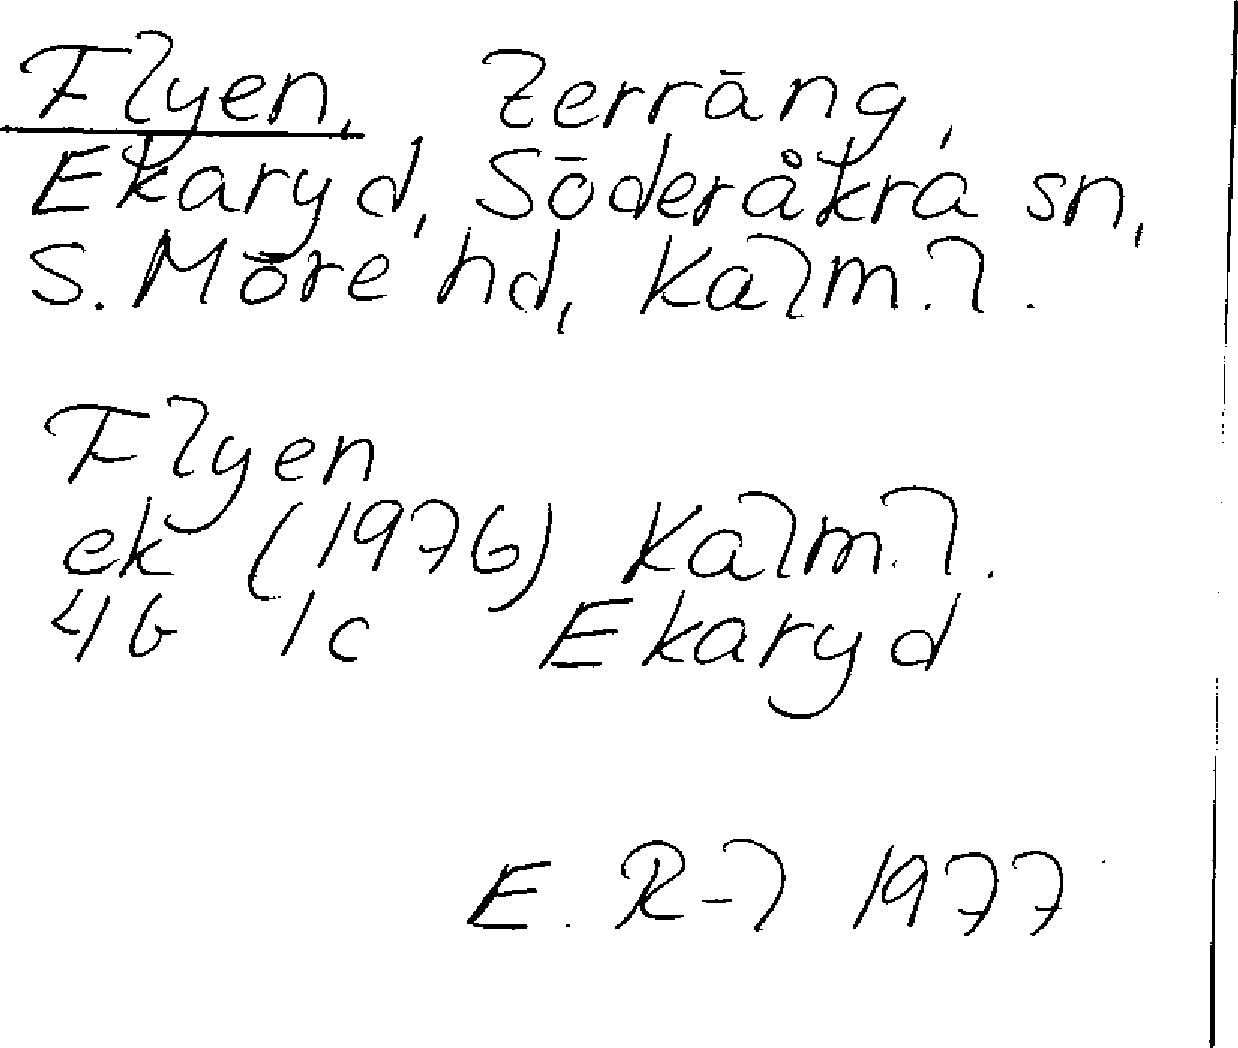 Flyen, terräng,
Ekaryd, Söderåkra sn,
S. Möre hd, Kalm. l.
Flyen
ek (1976) Kalm. l.
4G 1c Ekaryd
E. R-l 1977